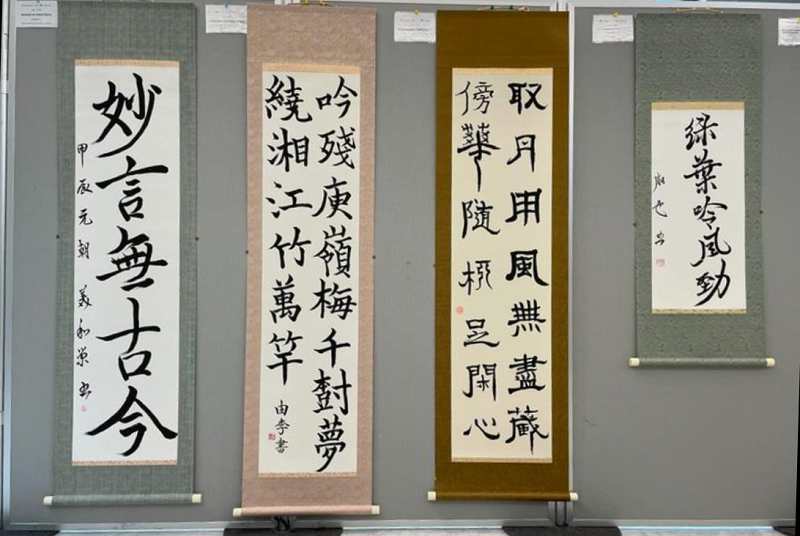 妙言無古今
甲辰元朝 美和 書
吟殘庾嶺梅千樹夢
繞湘江竹萬竿
由季書
取月用風無盡藏
傍華随柳足閑心
緑葉吟風勁
也書